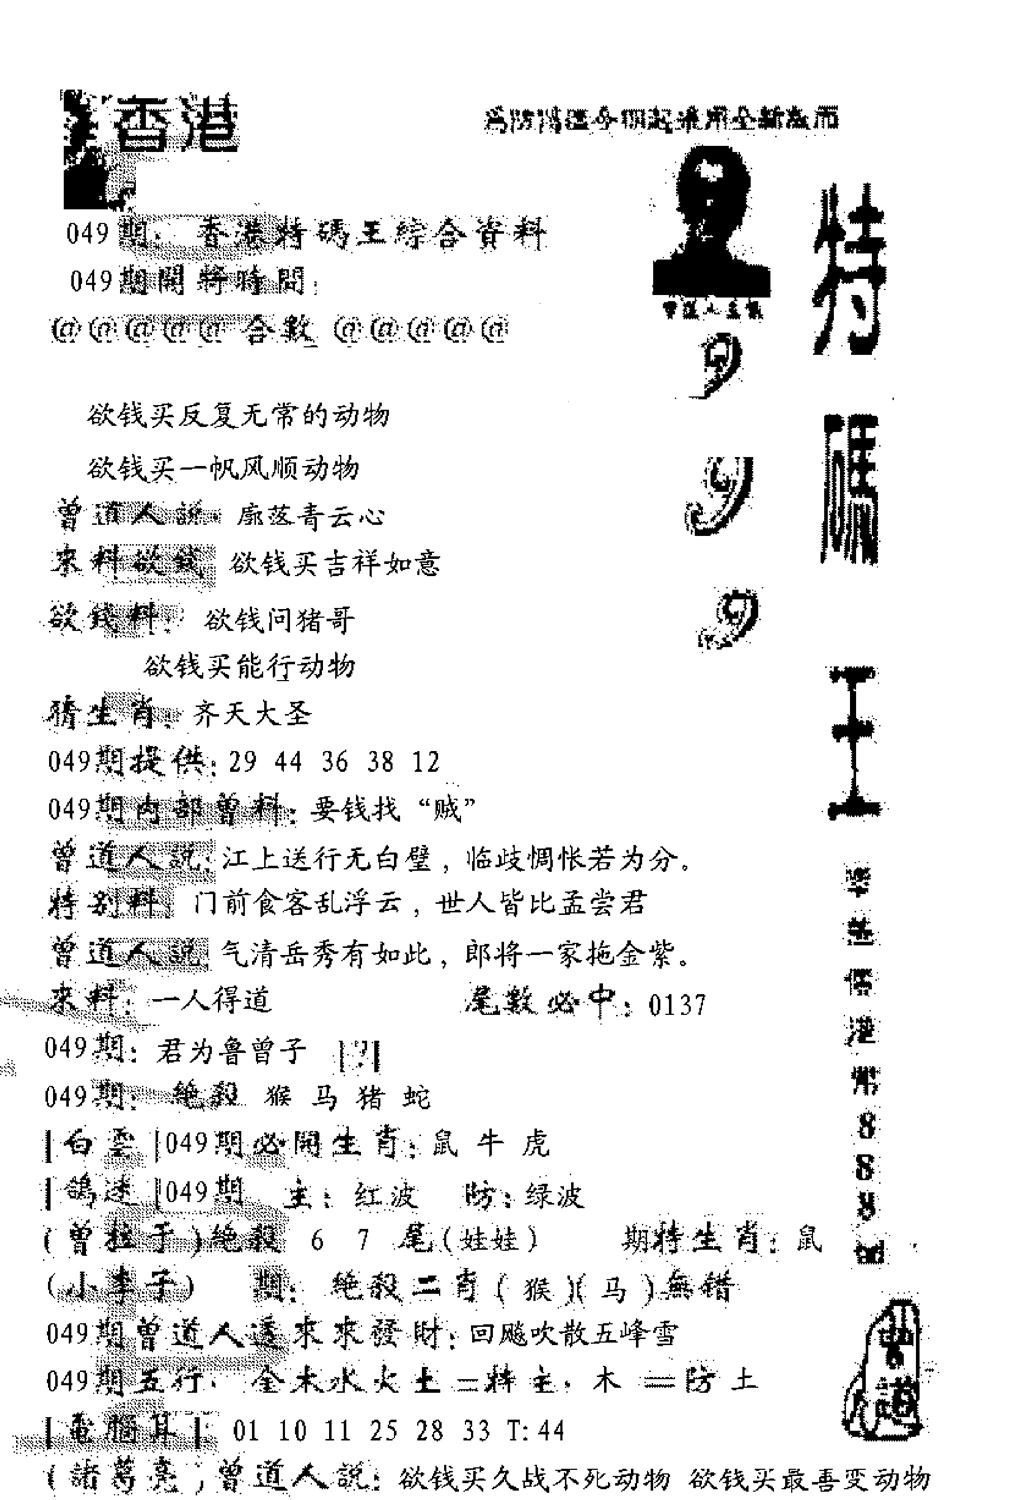 香港
049期：香港特碼王綜合資料
049期開將時間：
@@@@@ 合數 @@@@@
欲钱买反复无常的动物
欲钱买一帆风顺动物
曾道人說：廓落青云心
來料欲錢 欲钱买吉祥如意
欲錢料：欲钱问猪哥
欲钱买能行动物
猜生肖：齐天大圣
049期提供：29 44 36 38 12
049期内部曾料：要钱找“贼”
曾道人説：江上送行无白璧，临歧惆怅若为分。
特别料：门前食客乱浮云，世人皆比孟尝君
曾道人説 气清岳秀有如此，郎将一家拖金紫。
來料：一人得道 尾數必中：0137
049期：君为鲁曾子 |?|
049期：絶殺 猴 马 猪 蛇
|白雲|049期必開生肖：鼠 牛 虎
|鴿迷|049期 主：红波 防：绿波
(曾拉于)絶殺 6 7 尾(娃娃) 期特生肖：鼠
(小李子) 期：絶殺二肖(猴)(马)無错
049期曾道人透來來發財：回飚吹散五峰雪
049期五行：金木水火土二特主：木 二防土
|電腦耳|：01 10 11 25 28 33 T:44
(諸葛亮)曾道人説：欲钱买久战不死动物 欲钱买最善变动物
特碼王
888
曾道